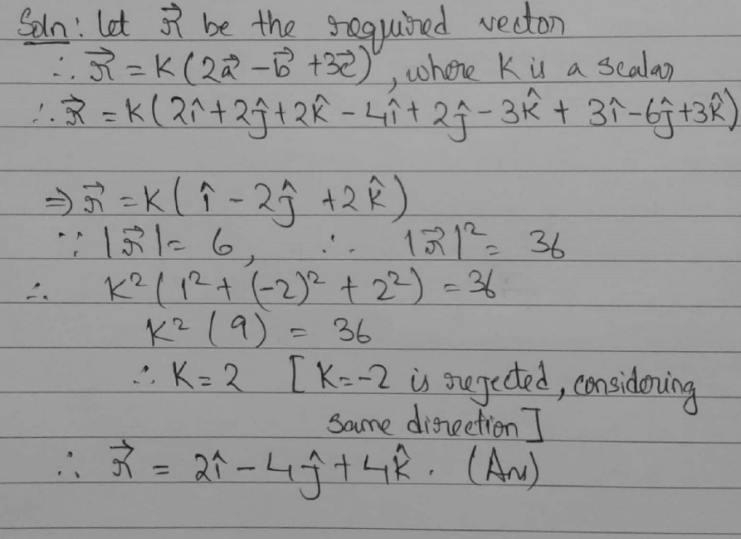 Soln: let r⃗ be the required vector
∴ r⃗ = K(2a⃗ - b⃗ + 3c⃗), where K is a scalar
∴ r⃗ = K(2î + 2ĵ + 2k̂ - 4î + 2ĵ - 3k̂ + 3î - 6ĵ + 3k̂)
⇒ r⃗ = K(î - 2ĵ + 2k̂)
∵ |r⃗| = 6, ∴ |r⃗|² = 36
∴ K²(1² + (-2)² + 2²) = 36
K²(9) = 36
∴ K = 2 [K = -2 is rejected, considering
same direction]
∴ r⃗ = 2î - 4ĵ + 4k̂. (Ans)